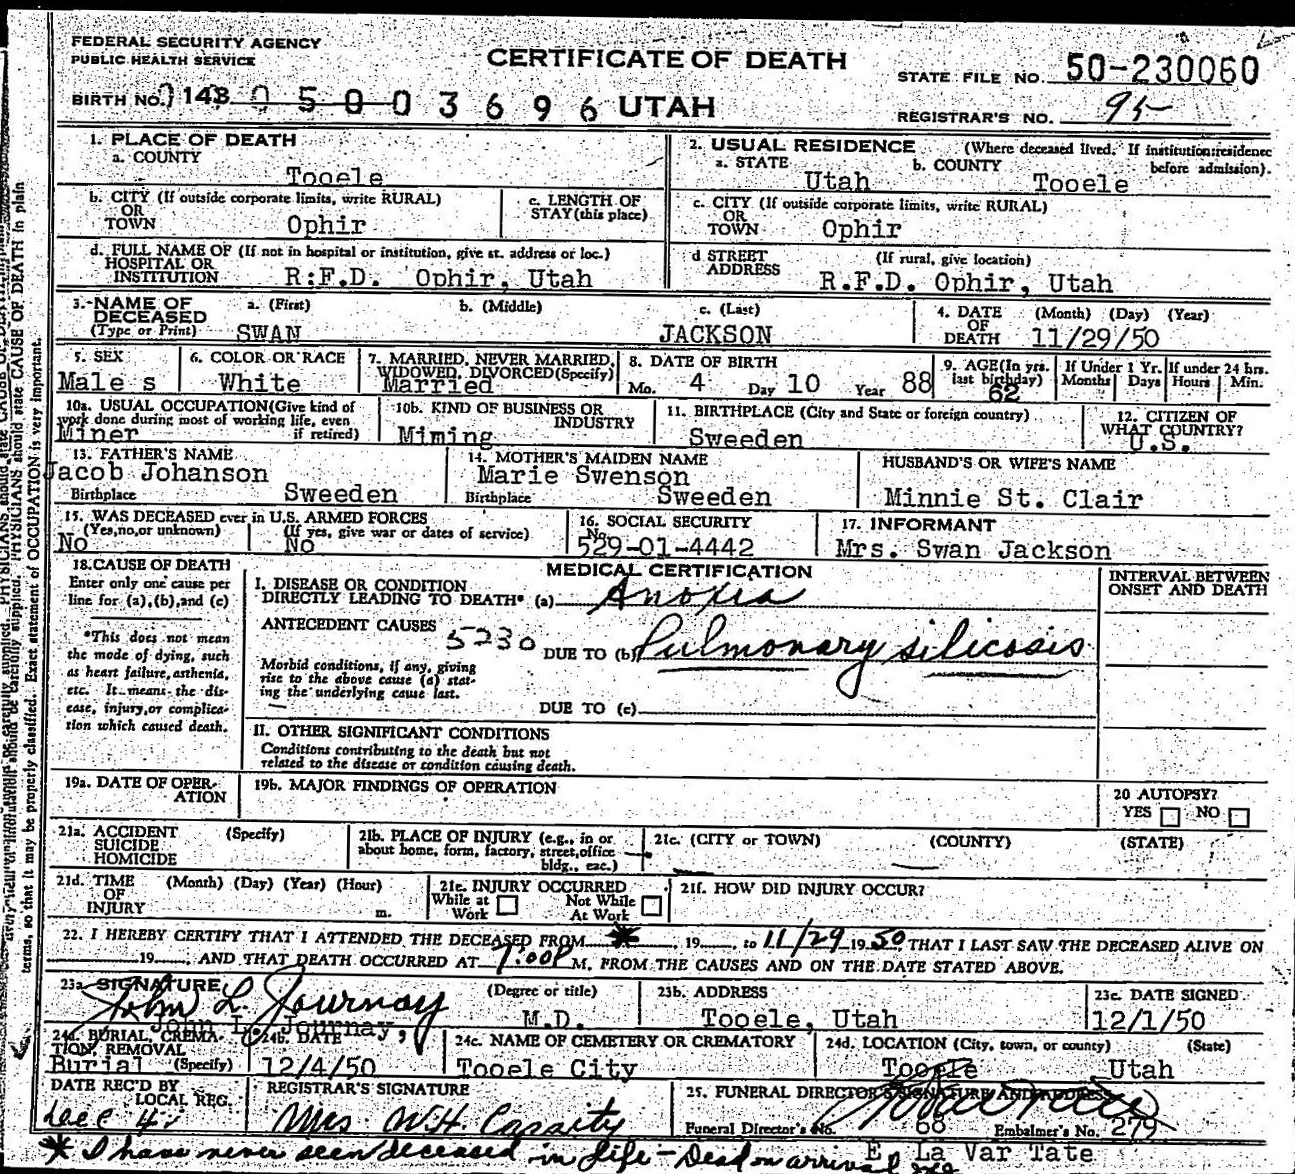 FEDERAL SECURITY AGENCY
PUBLIC HEALTH SERVICE
CERTIFICATE OF DEATH
STATE FILE NO. 50-230060
BIRTH NO. 143 0 5 0 0 3 6 9 6 UTAH
REGISTRAR'S NO. 95
1. PLACE OF DEATH
a. COUNTY
Tooele
2. USUAL RESIDENCE (Where deceased lived. If institution: residence before admission).
a. STATE b. COUNTY
Utah Tooele
b. CITY (If outside corporate limits, write RURAL)
OR
TOWN Ophir
c. LENGTH OF
STAY (this place)
c. CITY (If outside corporate limits, write RURAL)
OR
TOWN Ophir
d. FULL NAME OF (If not in hospital or institution, give st. address or loc.)
HOSPITAL OR
INSTITUTION R:F.D. Ophir, Utah
d STREET (If rural, give location)
ADDRESS R.F.D. Ophir, Utah
3. NAME OF a. (First) b. (Middle) c. (Last)
DECEASED
(Type or Print) SWAN JACKSON
4. DATE (Month) (Day) (Year)
OF
DEATH 11/29/50
5. SEX
Male s
6. COLOR OR RACE
White
7. MARRIED, NEVER MARRIED,
WIDOWED, DIVORCED (Specify)
Married
8. DATE OF BIRTH
Mo. 4 Day 10 Year 88
9. AGE (In yrs.
last birthday)
62
If Under 1 Yr.
Months Days
If under 24 hrs.
Hours Min.
10a. USUAL OCCUPATION (Give kind of
work done during most of working life, even
if retired)
Miner
10b. KIND OF BUSINESS OR
INDUSTRY
Miming
11. BIRTHPLACE (City and State or foreign country)
Sweeden
12. CITIZEN OF
WHAT COUNTRY?
U.S.
13. FATHER'S NAME
Jacob Johanson
Birthplace Sweeden
14. MOTHER'S MAIDEN NAME
Marie Swenson
Birthplace Sweeden
HUSBAND'S OR WIFE'S NAME
Minnie St. Clair
15. WAS DECEASED ever in U.S. ARMED FORCES
(Yes, no, or unknown) (If yes, give war or dates of service)
No No
16. SOCIAL SECURITY
No.
529-01-4442
17. INFORMANT
Mrs. Swan Jackson
18. CAUSE OF DEATH
Enter only one cause per
line for (a), (b), and (c)
*This does not mean
the mode of dying, such
as heart failure, asthenia,
etc. It means the dis-
ease, injury, or complica-
tion which caused death.
MEDICAL CERTIFICATION
INTERVAL BETWEEN
ONSET AND DEATH
I. DISEASE OR CONDITION
DIRECTLY LEADING TO DEATH* (a) Anoxia
ANTECEDENT CAUSES
5230 DUE TO (b) Pulmonary silicosis
Morbid conditions, if any, giving
rise to the above cause (a) stat-
ing the underlying cause last.
DUE TO (c)
II. OTHER SIGNIFICANT CONDITIONS
Conditions contributing to the death but not
related to the disease or condition causing death.
19a. DATE OF OPER-
ATION
19b. MAJOR FINDINGS OF OPERATION
20 AUTOPSY?
YES NO
21a. ACCIDENT (Specify)
SUICIDE
HOMICIDE
21b. PLACE OF INJURY (e.g., in or
about home, form, factory, street, office
bldg., exc.)
21c. (CITY or TOWN) (COUNTY) (STATE)
21d. TIME (Month) (Day) (Year) (Hour)
OF
INJURY m.
21e. INJURY OCCURRED
While at Not While
Work At Work
21f. HOW DID INJURY OCCUR?
22. I HEREBY CERTIFY THAT I ATTENDED THE DECEASED FROM * , 19 , to 11/29 1950, THAT I LAST SAW THE DECEASED ALIVE ON
19 , AND THAT DEATH OCCURRED AT 7:00P M. FROM THE CAUSES AND ON THE DATE STATED ABOVE.
23a SIGNATURE (Degree or title)
John L. Journay
John L. Journay, M.D.
23b. ADDRESS
Tooele, Utah
23c. DATE SIGNED
12/1/50
24a. BURIAL, CREMA-
TION, REMOVAL
Burial (Specify)
24b. DATE
12/4/50
24c. NAME OF CEMETERY OR CREMATORY
Tooele City
24d. LOCATION (City, town, or county) (State)
Tooele Utah
DATE REC'D BY
LOCAL REG.
Dec 4
REGISTRAR'S SIGNATURE
Mrs W.H. Cassity
25. FUNERAL DIRECTOR'S SIGNATURE AND ADDRESS
Funeral Director's No. 68 Embalmer's No. 279
E. La Var Tate
* I have never seen deceased in life - Dead on arrival
terms, so that it may be properly classified. Exact statement of OCCUPATION is very important.
PHYSICIANS should state CAUSE OF DEATH in plain